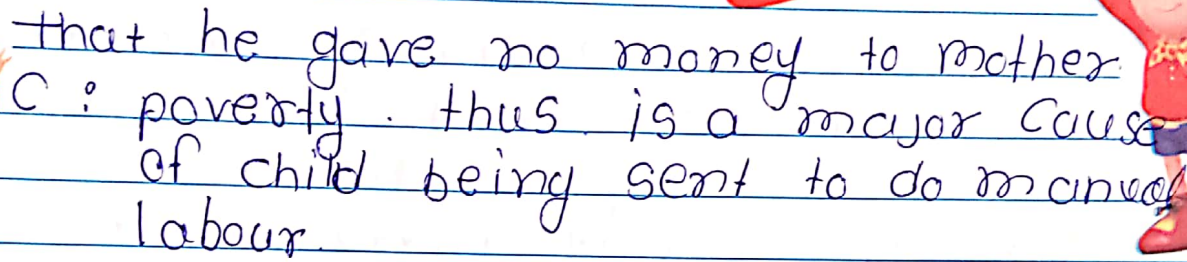 that he gave no money to mother
C : poverty. thus is a major Cause
of child being sent to do manual
labour.